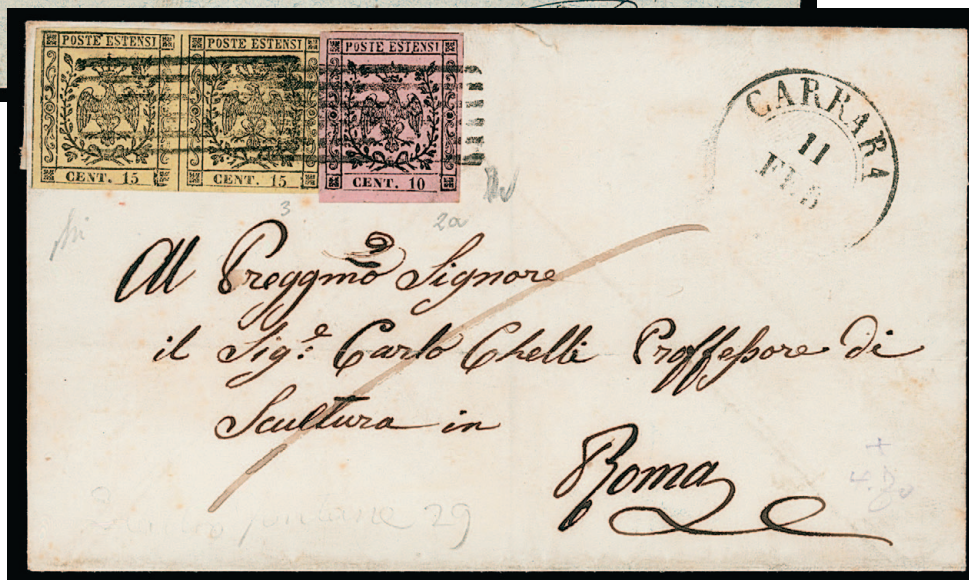 POSTE ESTENSI POSTE ESTENSI POSTE ESTENSI
CENT. 15 CENT. 15 CENT. 10
CARRARA
11
FEB
3
2a
Al Preggmo Signore
il Sig.e Carlo Chelli Proffeſsore di
Scultura in
Roma
29